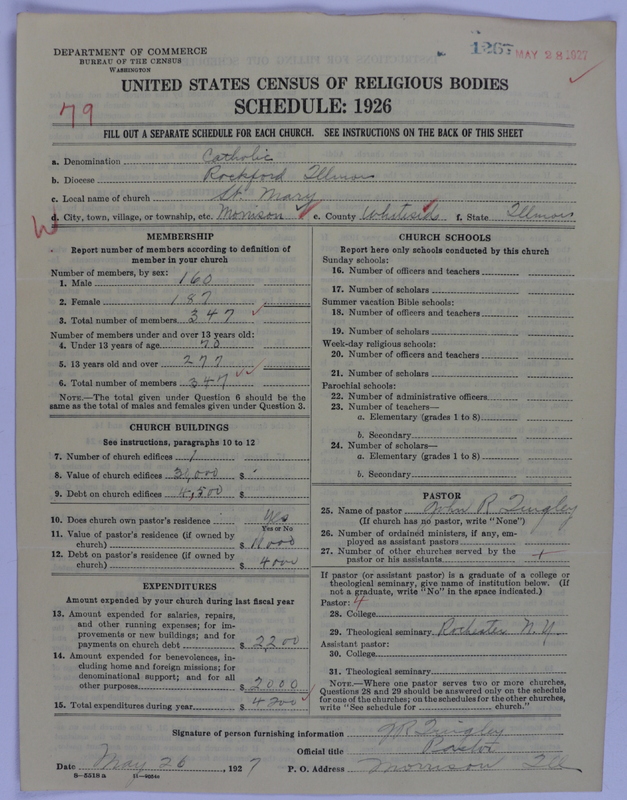 DEPARTMENT OF COMMERCE
BUREAU OF THE CENSUS
WASHINGTON
1267 MAY 28 1927
UNITED STATES CENSUS OF RELIGIOUS BODIES
SCHEDULE: 1926
79
FILL OUT A SEPARATE SCHEDULE FOR EACH CHURCH. SEE INSTRUCTIONS ON THE BACK OF THIS SHEET
a. Denomination Catholic
b. Diocese Rockford Illinois
c. Local name of church St. Mary
d. City, town, village, or township, etc. Morrison e. County Whiteside f. State Illinois
MEMBERSHIP
Report number of members according to definition of
member in your church
Number of members, by sex:
1. Male 160
2. Female 187
3. Total number of members 347
Number of members under and over 13 years old:
4. Under 13 years of age 70
5. 13 years old and over 277
6. Total number of members 347
NOTE.—The total given under Question 6 should be the
same as the total of males and females given under Question 3.
CHURCH BUILDINGS
See instructions, paragraphs 10 to 12
7. Number of church edifices 1
8. Value of church edifices $
9. Debt on church edifices 4,500 $
10. Does church own pastor's residence Yes
Yes or No
11. Value of pastor's residence (if owned by
church) $ 11000
12. Debt on pastor's residence (if owned by
church) $ 4000
EXPENDITURES
Amount expended by your church during last fiscal year
13. Amount expended for salaries, repairs,
and other running expenses; for im-
provements or new buildings; and for
payments on church debt $ 2200
14. Amount expended for benevolences, in-
cluding home and foreign missions; for
denominational support; and for all
other purposes $ 2000
15. Total expenditures during year $ 4200
CHURCH SCHOOLS
Report here only schools conducted by this church
Sunday schools:
16. Number of officers and teachers
17. Number of scholars
Summer vacation Bible schools:
18. Number of officers and teachers
19. Number of scholars
Week-day religious schools:
20. Number of officers and teachers
21. Number of scholars
Parochial schools:
22. Number of administrative officers
23. Number of teachers—
a. Elementary (grades 1 to 8)
b. Secondary
24. Number of scholars—
a. Elementary (grades 1 to 8)
b. Secondary
PASTOR
25. Name of pastor John R Tuigley
(If church has no pastor, write "None")
26. Number of ordained ministers, if any, em-
ployed as assistant pastors
27. Number of other churches served by the
pastor or his assistants
If pastor (or assistant pastor) is a graduate of a college or
theological seminary, give name of institution below. (If
not a graduate, write "No" in the space indicated.)
Pastor: 4
28. College
29. Theological seminary Rochester N.Y.
Assistant pastor:
30. College
31. Theological seminary
NOTE.—Where one pastor serves two or more churches,
Questions 28 and 29 should be answered only on the schedule
for one of the churches; on the schedules for the other churches,
write "See schedule for church."
Signature of person furnishing information
Official title Pastor
Date May 26, 1927 P. O. Address Morrison Ill
8—5518 a